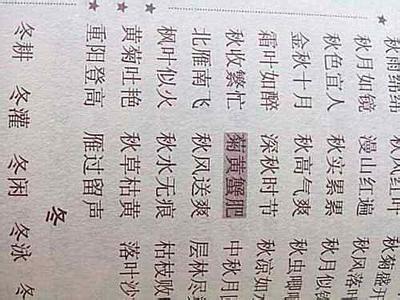 秋雨绵绵 秋风红叶 秋菊盛开
秋月如镜 漫山红遍 秋风落叶
秋色宜人 秋实累累 秋月似镜
金秋十月 秋高气爽 秋虫唧唧
霜叶如醉 深秋时节 秋凉如
秋收繁忙 菊黄蟹肥 中秋月圆
北雁南飞 秋风送爽 层林尽
枫叶似火 秋水无痕 枯枝败
黄菊吐艳 秋草枯黄 落叶沙
重阳登高 雁过留声
冬
冬耕 冬灌 冬闲 冬泳 冬